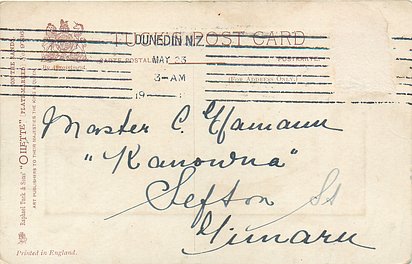 TUCK'S POST CARD
DUNEDIN N.Z
MAY 23
3-AM
19
CARTE POSTALE
POSTKARTE
(FOR ADDRESS ONLY)
Master C. Hamann
"Kanowna"
Sefton St
Timaru
Raphael Tuck & Sons' "OILETTE"
ART PUBLISHERS TO THEIR MAJESTIES THE KING & QUEEN
Printed in England.